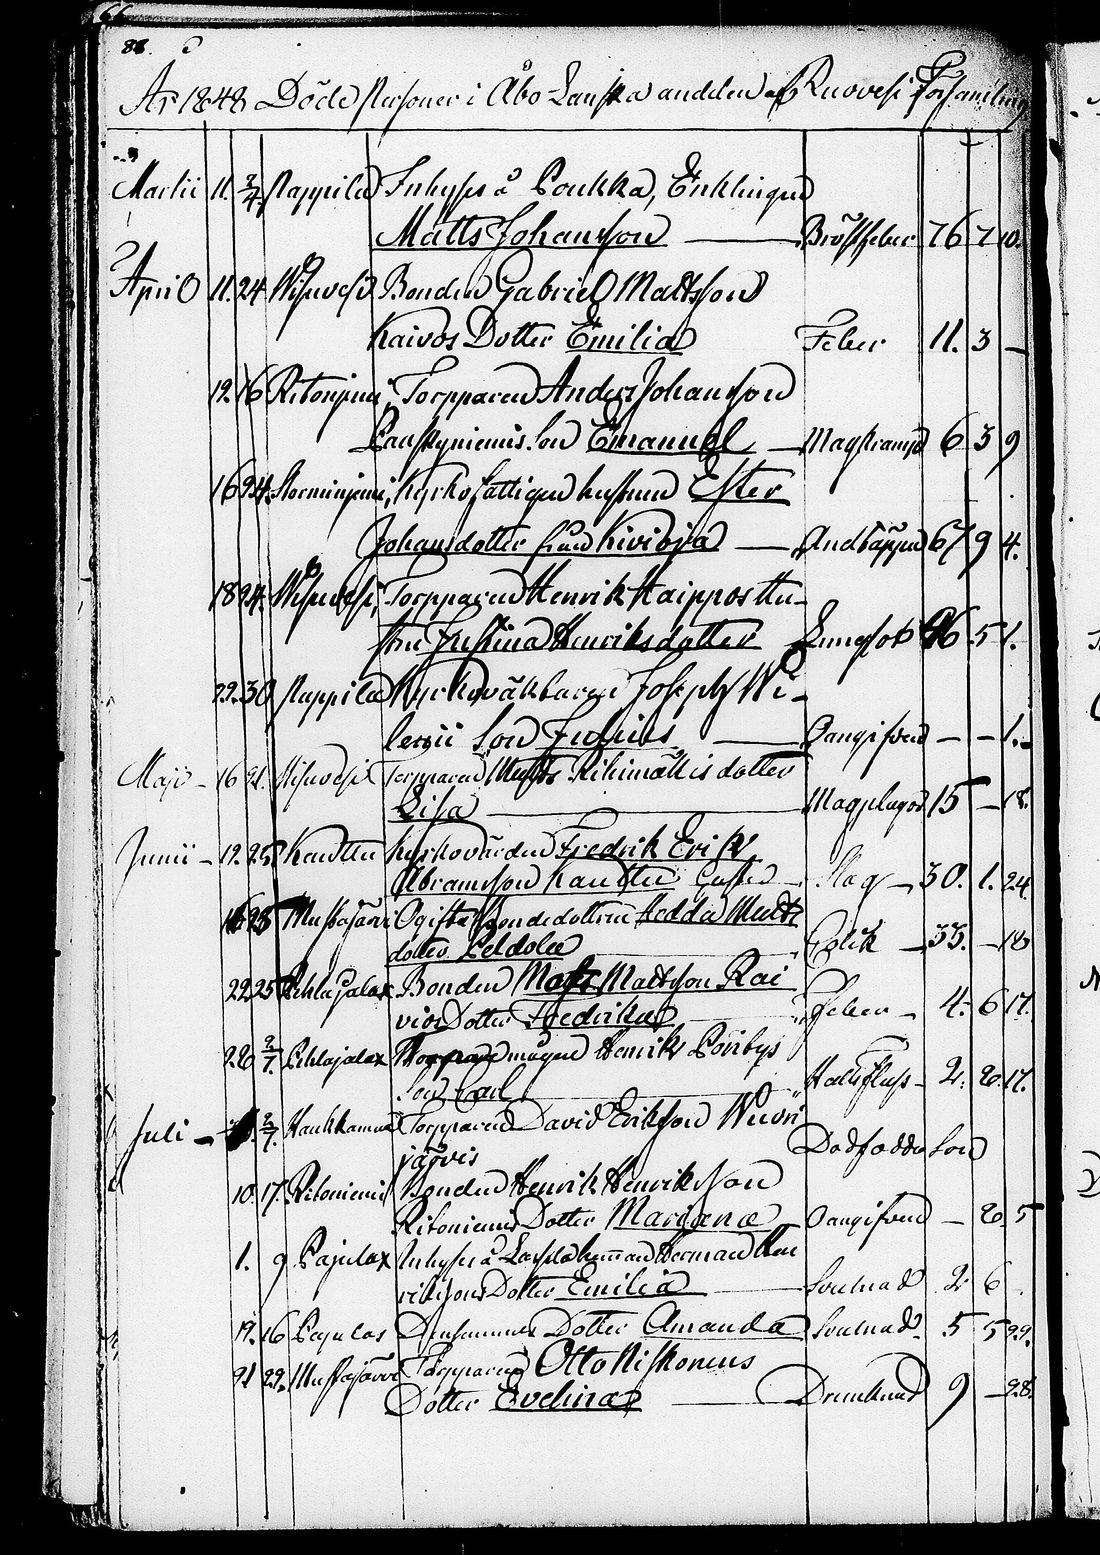 66
88.
År 1848 Döde Personer i Åbo Länska andelen af Ruovesi Församling
Martii 11. 2/4. Pappila Inhyses å Poukka, Enklingen
Matts Johansson — Bröstfeber 76 7 10.
April 11. 24. Wisuvesi Bonden Gabriel Mattsson
Kaivos Dotter Emilia Feber 11. 3 —
12. 16 Ritoniemi, Torpparen Anders Johansson
Son Emanuel — Magkramp 6 3 9
16 24. Storminiemi, Kyrkofattigen hustrun Ester
Johansdotter från Kivioja — Andtäppa 67 9 4.
18 24. Wisuvesi, Torpparen Henrik Kaippos Hu-
stru Justina Henriksdotter Lungsot 5 1.
22. 30. Pappila Kyrkoväktaren Joseph Wi-
lenii Son Julius — Oangifven — — 1.
Maji — 16 21. Wisuvesi Torpparen Matts Riihimäkis dotter
Lisa — Magplågor 15 — 18.
Junii — 12. 25. Kauttu Kyrkovärden Fredrik Erik
Abramsson Kauttu Slag — 30. 1. 24
16 25 Mustajärvi Ogifta Bondedottren Hedda Matts
dotter Peldola Kolik — 33. — 18
22 25 Pehlajalax Bonden Mats Mattsson Rai
vios Dotter Fredrika Feber — 4. 6 17.
26 2/7. Pehlajalax mågen Henrik Pohibys
Son Carl Halsfluss — 2. 2. 17.
Juli — 2/7. Haukkamaa Torpparen David Eriksson Wuori
järvis Dödfödde Son
10. 17. Ritoniemi Bonden Henrik Henriksson
Ritoniemis Dotter Mariana Oangifven — 2 5
1. 9 Pajulax Inhyses å Herman Hen
rikssons Dotter Emilia — Soulnad 2 6
12. 16 Pajulax Densammes Dotter Amanda Soulnad 5 5 22.
21 22. Mustajärvi Torpparen Otto Niskonens
Dotter Evelina — Drunknad 9 — 28.